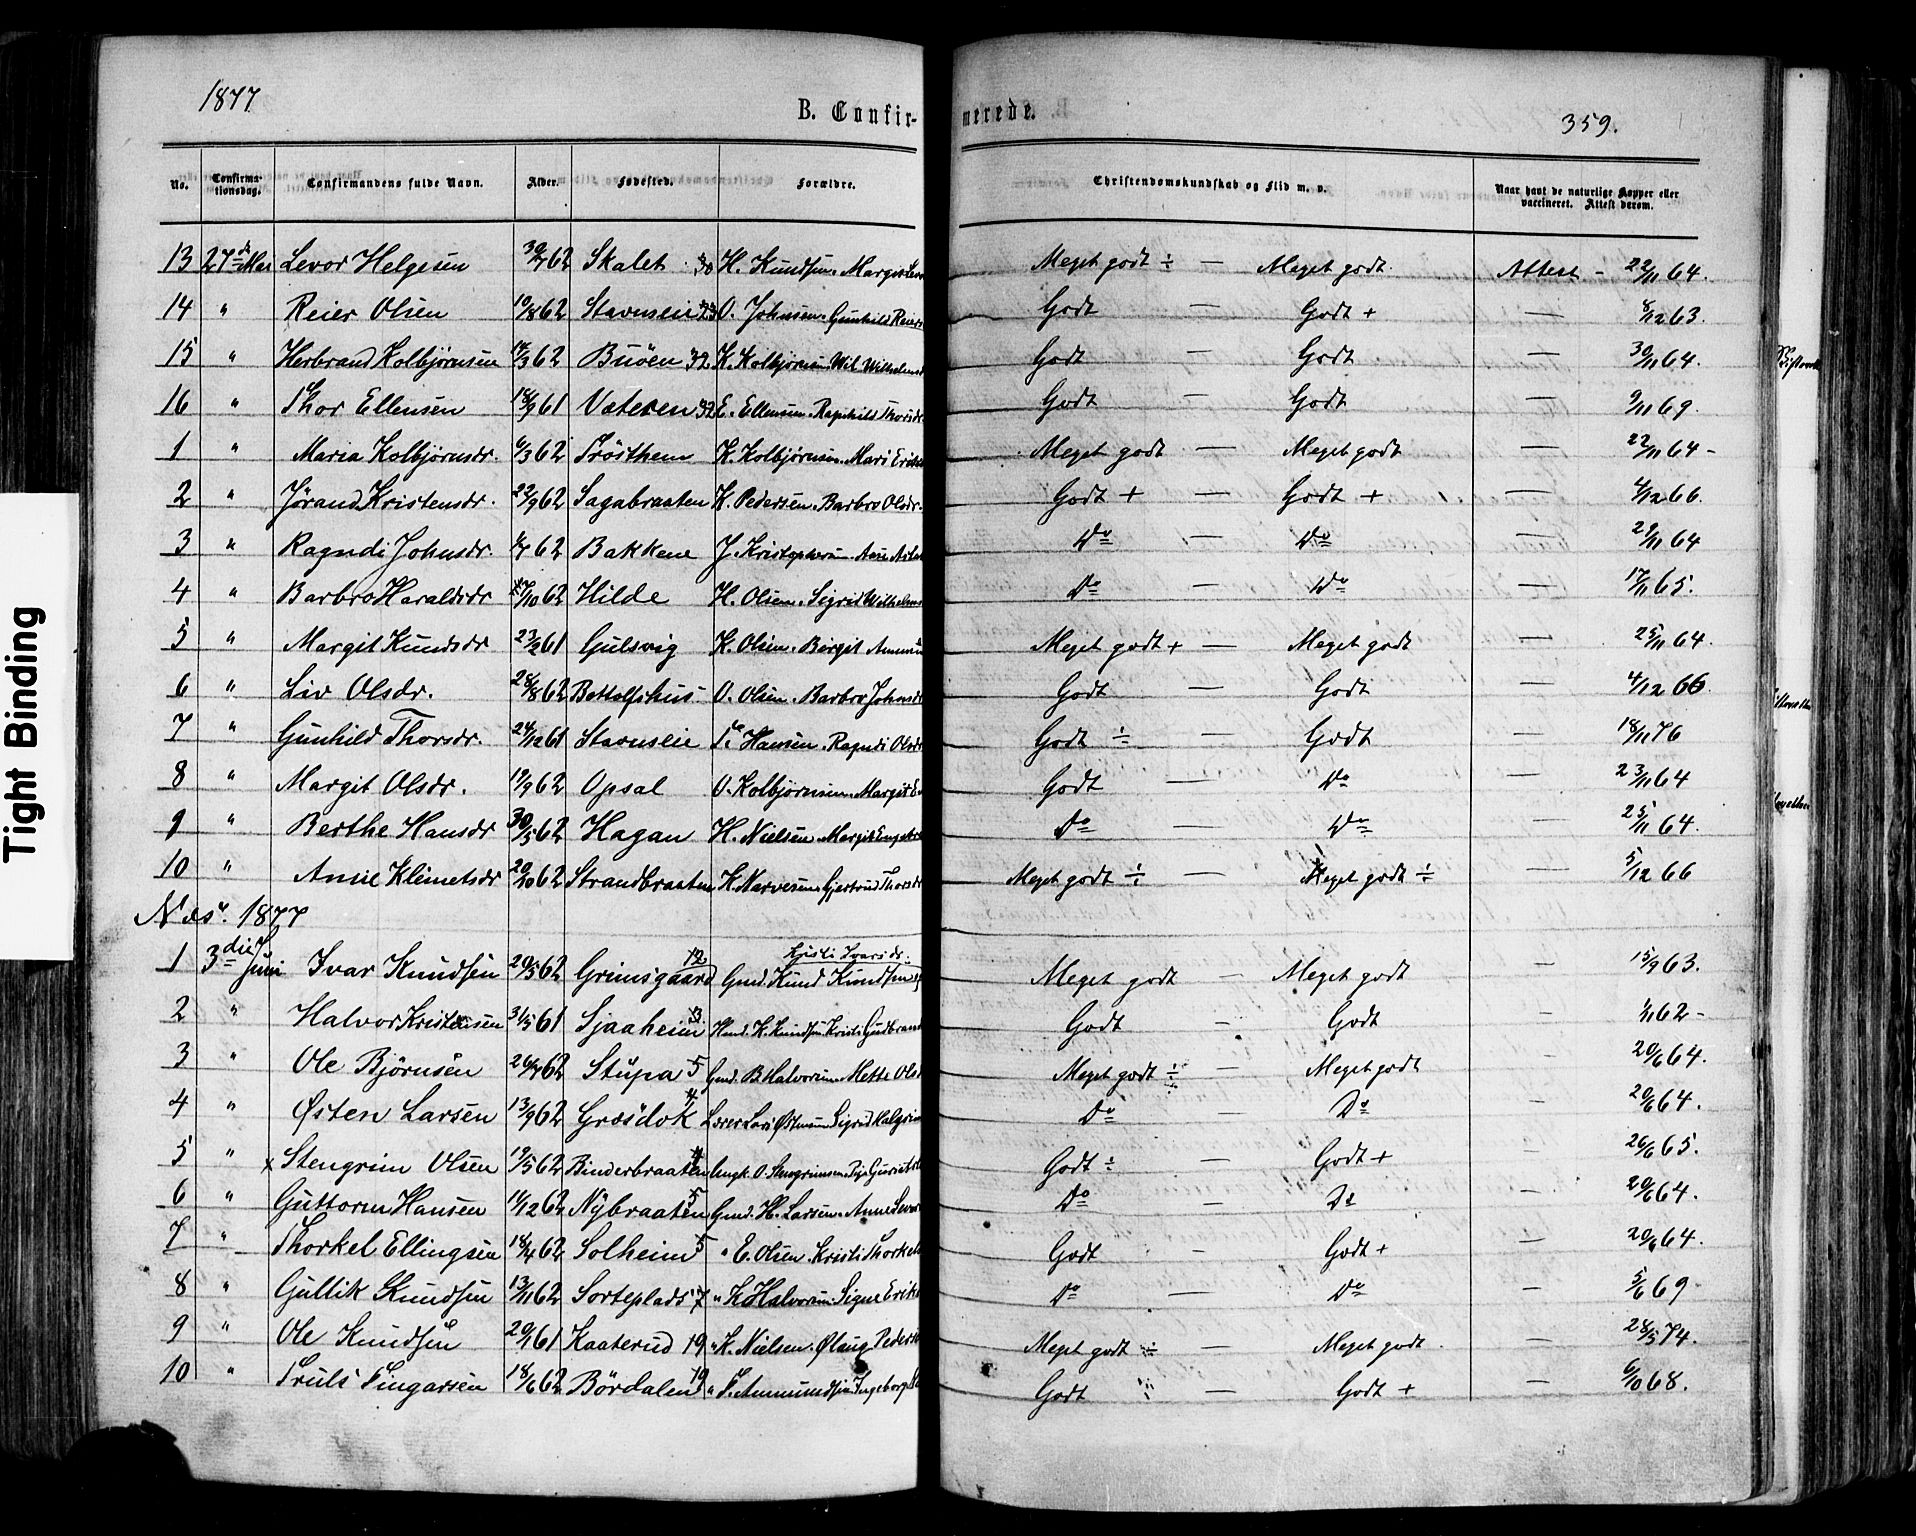 1877
B. Confirmerede.
359.
No. Confirmationsdag. Confirmandens fulde Navn. Alder. Fødested. Forældre. Christendomskundskab og Flid m. v. Naar havt de naturlige Kopper eller vaccineret. Attest derom.
13 27de Mai Levor Helgesen 30/7 62 Skalet 30 H. Knudsen. Margit Meget godt ÷ — Meget godt. Attest — 22/11 64.
14 " Reier Olsen 10/8 62 Stavnseie 23 O. Johnsen. Gunhild Reiers Godt — Godt + — 8/12 63.
15 " Herbrand Kolbjørnsen 14/3 62 Buøen 32 K. Kolbjørnsen. Wilhelmsd Godt — Godt — 30/11 64.
16 " Thor Ellensen 18/9 61 Vateren 32 E. Ellensen. Ragnhild Thorsdr Godt — Godt — 9/11 69.
1 " Maria Kolbjørnsdr. 6/3 62 Trøsthem K. Kolbjørnsen. Mari Meget godt — Meget godt — 22/11 64 —
2 " Jørand Kristensdr. 22/9 62 Sagabraaten K. Pedersen. Barbro Olsdr. Godt + — Godt + — 4/12 66.
3 " Ragndi Johnsdr. 62 Bakkene J. Do — Do — 29/11 64
4 " Barbro Haraldsdr 27/10 62 Hilde H. Olsen. Sigrid Wilhelms Do — Do — 17/11 65.
5 " Margit Knudsdr 23/2 61 Gulsvig K. Olsen. Birgit Meget godt + — Meget godt — 25/11 64.
6 " Liv Olsdr. 28/8 62 Bottolfshus O. Olsen. Barbro Johnsdr Godt — Godt — 4/12 66.
7 " Gunhild Thorsdr. 24/12 61 Stavnseie T. Hansen. Ragndi Olsdr Godt ÷ — Godt — 18/11 76
8 " Margit Olsdr. 19/9 62 Opsal O. Kolbjørnsen. Margit Godt — Do — 23/11 64
9 " Berthe Hansdr 30/5 62 Hagan H. Nielsen. Margit Do — Do — 25/11 64.
10 " Anne Klemetsdr 20/10 62 Strandbraaten K. Narvesen. Gjertrud Thorsdr Meget godt ÷ — Meget godt ÷ — 5/12 66
Næs. 1877
Kristi Ivarsdr.
1 3die Juni Ivar Knudsen 20/5 62 Grimsgaard 12 Gmd. Knud Knudsen Meget godt — Meget godt — 15/9 63.
2 " Halvor Kristensen 31/5 61 Sjaaheim 3. K. Knudsen Kristi Gudbrand Godt — Godt — 62 —
3 " Ole Bjørnsen 26/4 62 Stupa 5 Gmd. B. Halvorsen. Mette Olsd Meget godt ÷ — Meget godt — 20/6 64.
4 " Østen Larsen 13/9 62 Græsdok 4 Lærer Lars Østensen Sigrid Halgrim Do — Do — 20/6 64.
5 " x Stengrim Olsen 19/5 62 Binderbraaten 4 O. Stengrimsen Godt ÷ — Godt + — 26/6 65.
6 " Guttorm Hansen 14/12 62 Nybraaten 5 Gmd. H. Larsen. Anne Do — Do — 20/6 64.
7 " Thorkel Ellingsen 18/4 62 Solheim 5 " E. Olsen. Kristi Thorkels Godt — Godt + — 20/6 64.
8 " Gullik Knudsen 13/11 62 Sorteplads 7 " K. Halvorsen Signe Do — Do — 5/6 69 —
9 " Ole Knudsen 20/1 61 Kaaterud 19 " K. Nielsen. Ølaug Peders Meget godt ÷ — Meget godt. — 28/5 74.
10 " Truls Fingarsen 18/6 62 Børdalen 19 " F. Ammundsen Ingeborg Godt ÷ — Godt + — 6/10 68.
Tight Binding